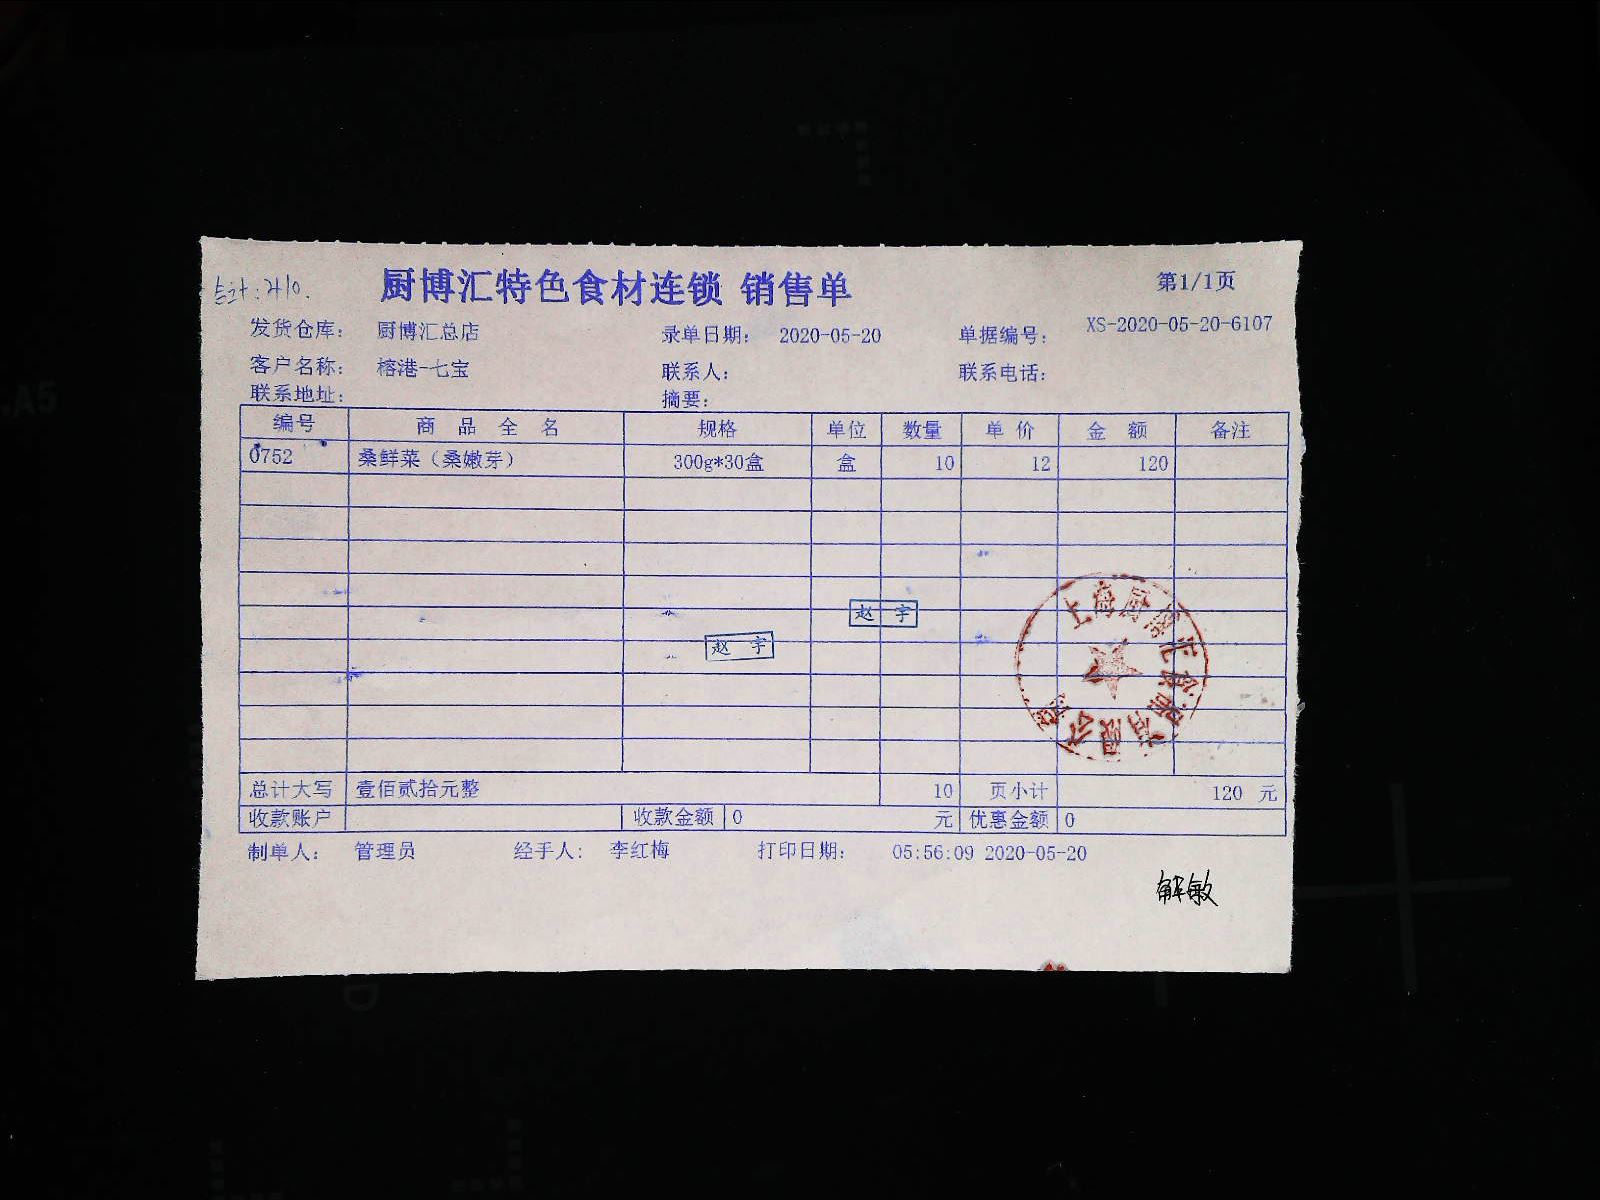 厨博汇特色食材连锁 销售单
第1/1页
发货仓库： 厨博汇总店 录单日期： 2020-05-20 单据编号： XS-2020-05-20-6107
客户名称： 榕港-七宝 联系人： 联系电话：
联系地址： 摘要：
编号 商品全名 规格 单位 数量 单价 金额 备注
0752 桑鲜菜（桑嫩芽） 300g*30盒 盒 10 12 120
赵宇
赵宇
上海厨博汇食品有限公司
总计大写 壹佰贰拾元整 10 页小计 120 元
收款账户 收款金额 0 元 优惠金额 0
制单人： 管理员 经手人： 李红梅 打印日期： 05:56:09 2020-05-20
解敏